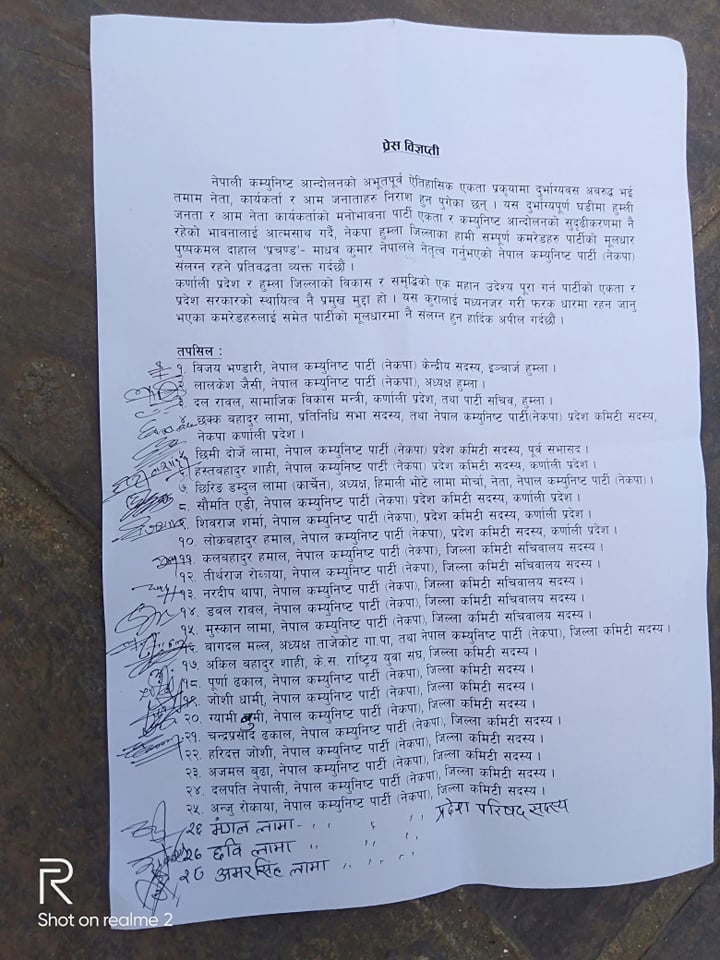 प्रेस विज्ञप्ती
नेपाली कम्युनिष्ट आन्दोलनको अभूतपूर्व ऐतिहासिक एकता प्रकृयामा दुर्भाग्यवस अवरुद्ध भई
तमाम नेता, कार्यकर्ता र आम जनताहरु निराश हुन पुगेका छन् । यस दुर्भाग्यपूर्ण घडीमा हुम्ली
जनता र आम नेता कार्यकर्ताको मनोभावना पार्टी एकता र कम्युनिष्ट आन्दोलनको सुदृढीकरणमा नै
रहेको भावनालाई आत्मसाथ गर्दै, नेकपा हुम्ला जिल्लाका हामी सम्पूर्ण कमरेडहरु पार्टीको मूलधार
पुष्पकमल दाहाल 'प्रचण्ड'- माधव कुमार नेपालले नेतृत्व गर्नुभएको नेपाल कम्युनिष्ट पार्टी (नेकपा)
संलग्न रहने प्रतिवद्धता व्यक्त गर्दछौं ।
कर्णाली प्रदेश र हुम्ला जिल्लाको विकास र समृद्धिको एक महान उदेश्य पूरा गर्न पार्टीको एकता र
प्रदेश सरकारको स्थायित्व नै प्रमुख मुद्दा हो । यस कुरालाई मध्यनजर गरी फरक धारमा रहन जानु
भएका कमरेडहरुलाई समेत पार्टीको मूलधारमा नै संलग्न हुन हार्दिक अपील गर्दछौं ।
तपसिल :
१. विजय भण्डारी, नेपाल कम्युनिष्ट पार्टी (नेकपा) केन्द्रीय सदस्य, इञ्चार्ज हुम्ला ।
२. लालकेश जैसी, नेपाल कम्युनिष्ट पार्टी (नेकपा), अध्यक्ष हुम्ला ।
३. दल रावल, सामाजिक विकास मन्त्री, कर्णाली प्रदेश, तथा पार्टी सचिव, हुम्ला ।
४. छक्क बहादुर लामा, प्रतिनिधि सभा सदस्य, तथा नेपाल कम्युनिष्ट पार्टी(नेकपा) प्रदेश कमिटी सदस्य,
नेकपा कर्णाली प्रदेश ।
५. छिमी दोर्जे लामा, नेपाल कम्युनिष्ट पार्टी (नेकपा) प्रदेश कमिटी सदस्य, पूर्व सभासद ।
६. हस्तबहादुर शाही, नेपाल कम्युनिष्ट पार्टी (नेकपा) प्रदेश कमिटी सदस्य, कर्णाली प्रदेश ।
७. छिरिङ डम्दुल लामा (कार्चेन), अध्यक्ष, हिमाली भोटे लामा मोर्चा, नेता, नेपाल कम्युनिष्ट पार्टी (नेकपा) ।
८. सौमति एडी, नेपाल कम्युनिष्ट पार्टी (नेकपा) प्रदेश कमिटी सदस्य, कर्णाली प्रदेश ।
९. शिवराज शर्मा, नेपाल कम्युनिष्ट पार्टी (नेकपा), प्रदेश कमिटी सदस्य, कर्णाली प्रदेश ।
१०. लोकबहादुर हमाल, नेपाल कम्युनिष्ट पार्टी (नेकपा), प्रदेश कमिटी सदस्य, कर्णाली प्रदेश ।
११. कलबहादुर हमाल, नेपाल कम्युनिष्ट पार्टी (नेकपा), जिल्ला कमिटी सचिवालय सदस्य ।
१२. तीर्थराज रोकाया, नेपाल कम्युनिष्ट पार्टी (नेकपा), जिल्ला कमिटी सचिवालय सदस्य ।
१३. नरदीप थापा, नेपाल कम्युनिष्ट पार्टी (नेकपा), जिल्ला कमिटी सचिवालय सदस्य ।
१४. डवल रावल, नेपाल कम्युनिष्ट पार्टी (नेकपा), जिल्ला कमिटी सचिवालय सदस्य ।
१५. मुस्कान लामा, नेपाल कम्युनिष्ट पार्टी (नेकपा), जिल्ला कमिटी सचिवालय सदस्य ।
१६. बागदल मल्ल, अध्यक्ष ताजेकोट गा.पा, तथा नेपाल कम्युनिष्ट पार्टी (नेकपा), जिल्ला कमिटी सदस्य ।
१७. अकिल बहादुर शाही, के.स. राष्ट्रिय युवा संघ, जिल्ला कमिटी सदस्य ।
१८. पूर्णा ढकाल, नेपाल कम्युनिष्ट पार्टी (नेकपा), जिल्ला कमिटी सदस्य ।
१९. जोशी धामी, नेपाल कम्युनिष्ट पार्टी (नेकपा), जिल्ला कमिटी सदस्य ।
२०. ग्यामी नेपाल कम्युनिष्ट पार्टी (नेकपा), जिल्ला कमिटी सदस्य ।
२१. चन्द्रप्रसाद ढकाल, नेपाल कम्युनिष्ट पार्टी (नेकपा), जिल्ला कमिटी सदस्य ।
२२. हरिदत्त जोशी, नेपाल कम्युनिष्ट पार्टी (नेकपा), जिल्ला कमिटी सदस्य ।
२३. अजमल बुढा, नेपाल कम्युनिष्ट पार्टी (नेकपा), जिल्ला कमिटी सदस्य ।
२४. दलपति नेपाली, नेपाल कम्युनिष्ट पार्टी (नेकपा), जिल्ला कमिटी सदस्य ।
२५. अन्जु रोकाया, नेपाल कम्युनिष्ट पार्टी (नेकपा), जिल्ला कमिटी सदस्य ।
२६ मंगल लामा - ,, ,, ,, प्रदेश परिषद सदस्य
२७ छवि लामा ,, ,, ,,
२८ अमरसिंह लामा ,, ,, ,,
R
Shot on realme 2